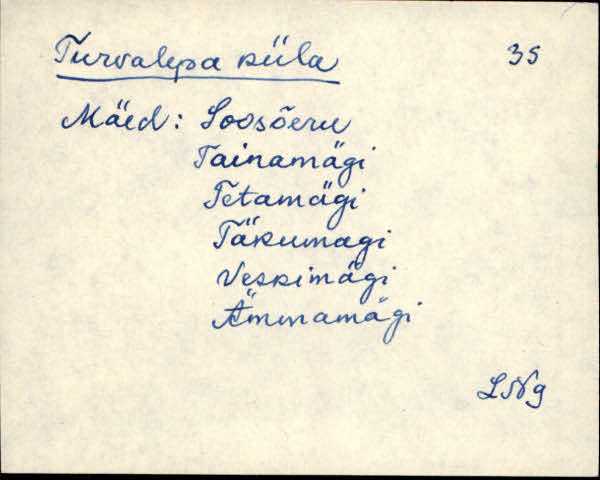 Turvalepa küla 35
Mäed: Soosõeru
Tainamägi
Tetamägi
Täkumagi
Veskimägi
Ämmamägi
LNg